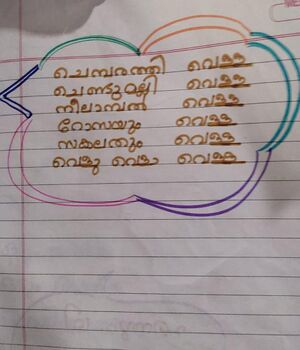 ചെമ്പരത്തി വെള്ള
ചെണ്ടുമല്ലി വെള്ള
നീലാമ്പൽ വെള്ള
റോസയും വെള്ള
സകലതും വെള്ള
വെള്ള വെള്ള വെള്ള